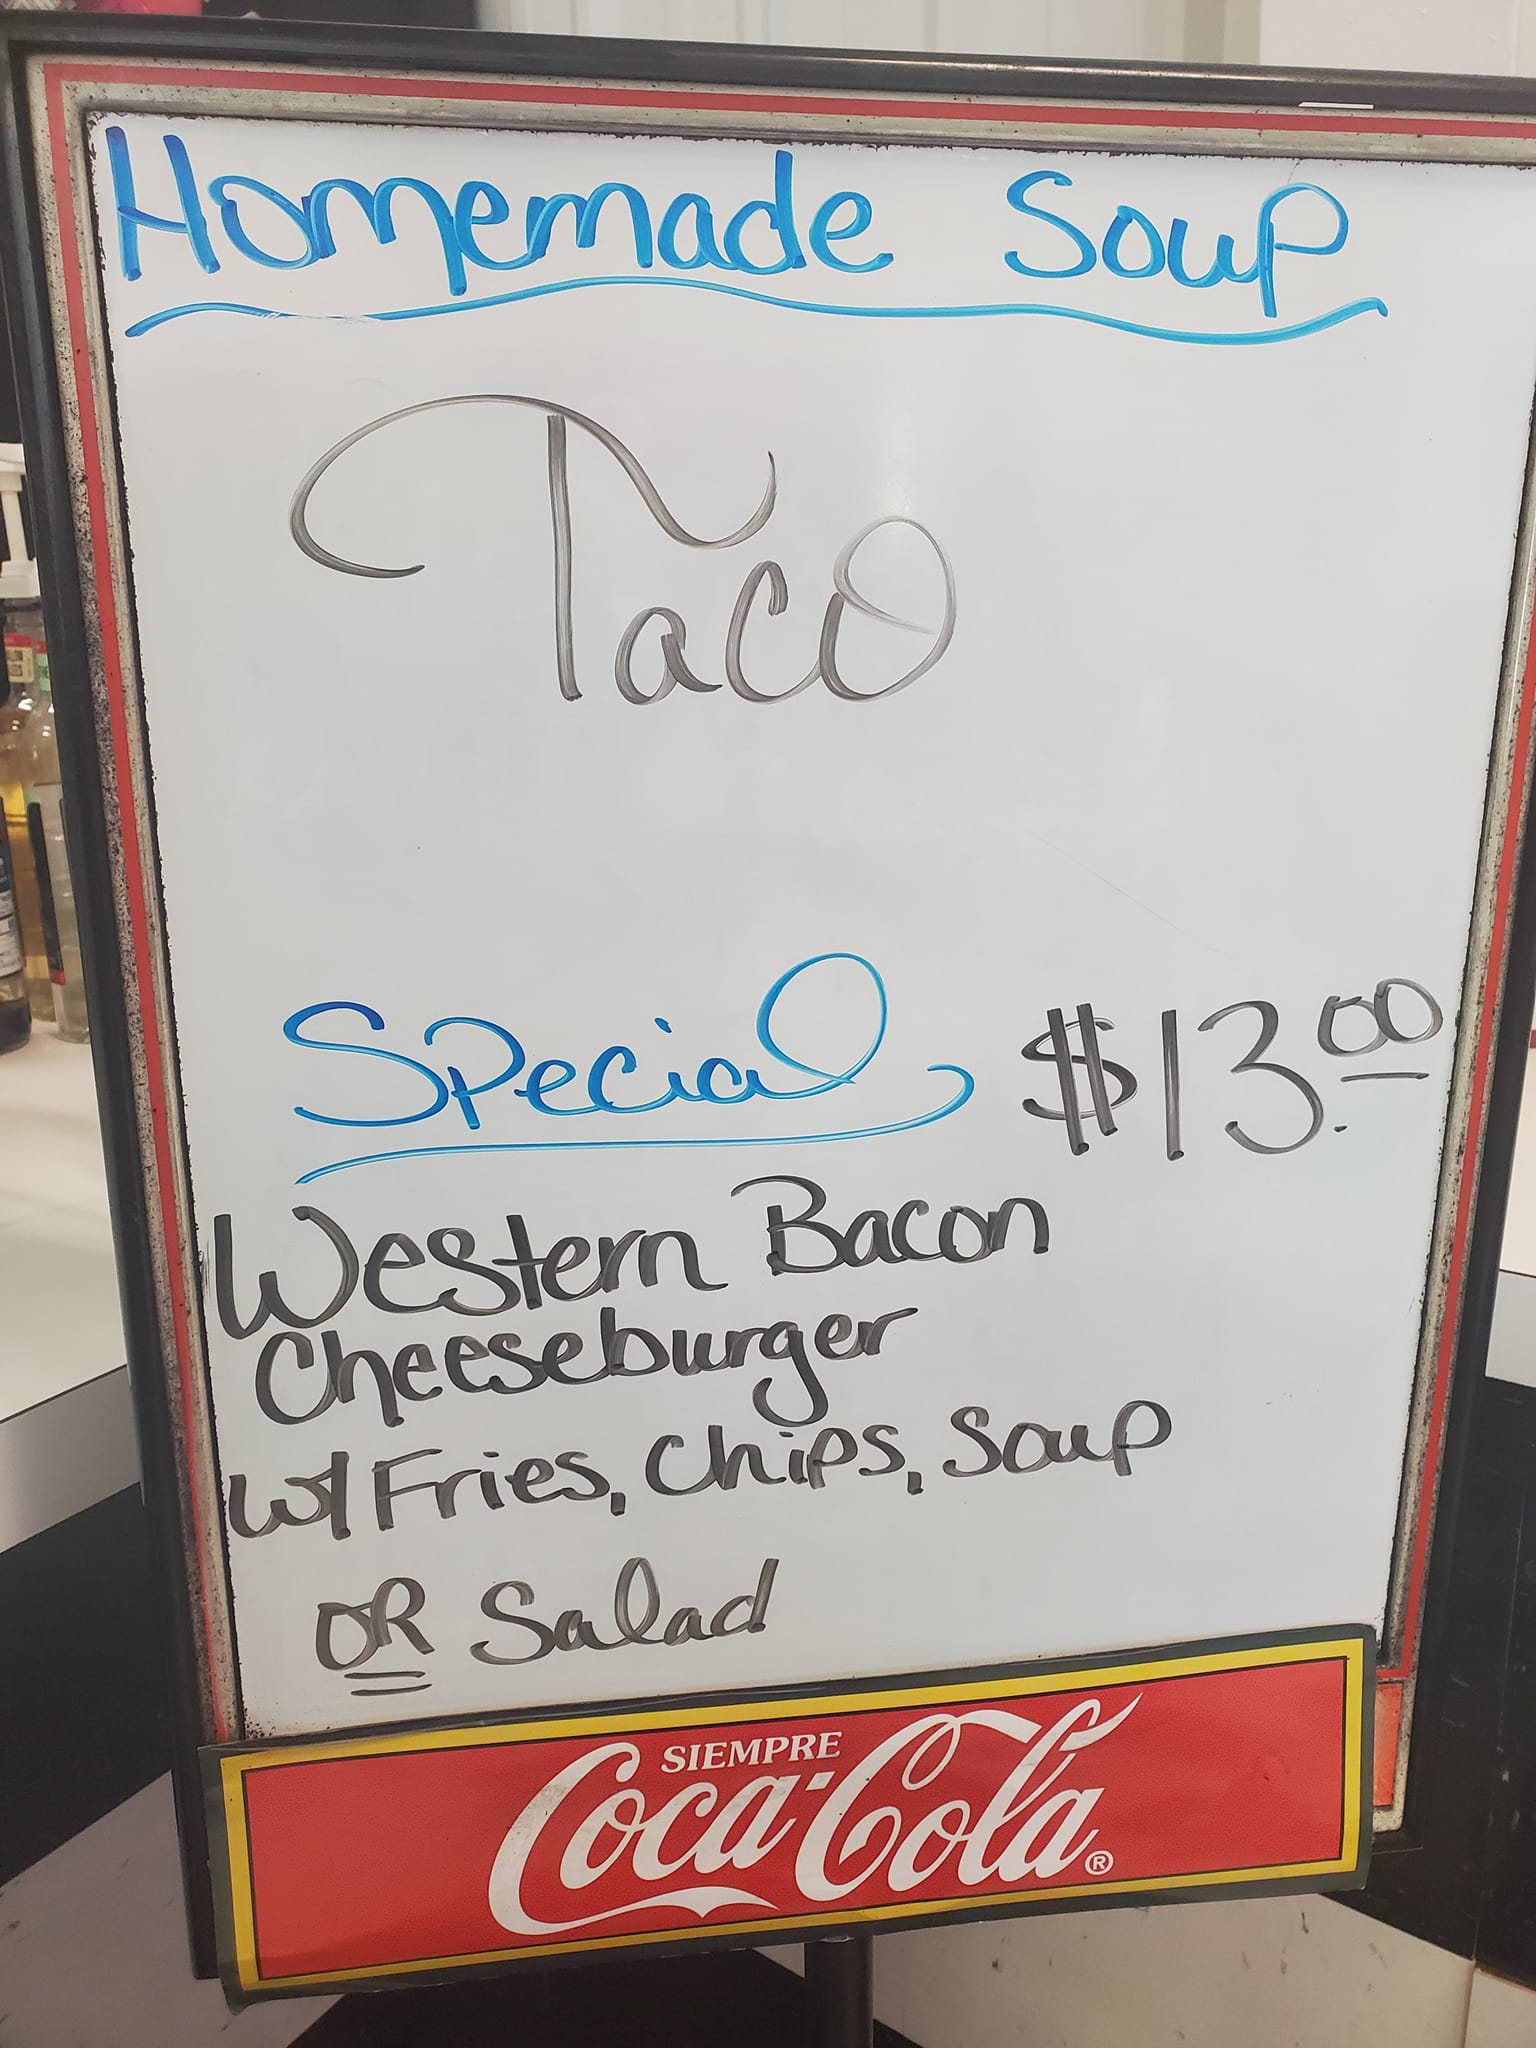 Homemade Soup
Taco
Special $13.00
Western Bacon
Cheeseburger
w/ Fries, Chips, Soup
OR Salad
SIEMPRE
Coca-Cola®